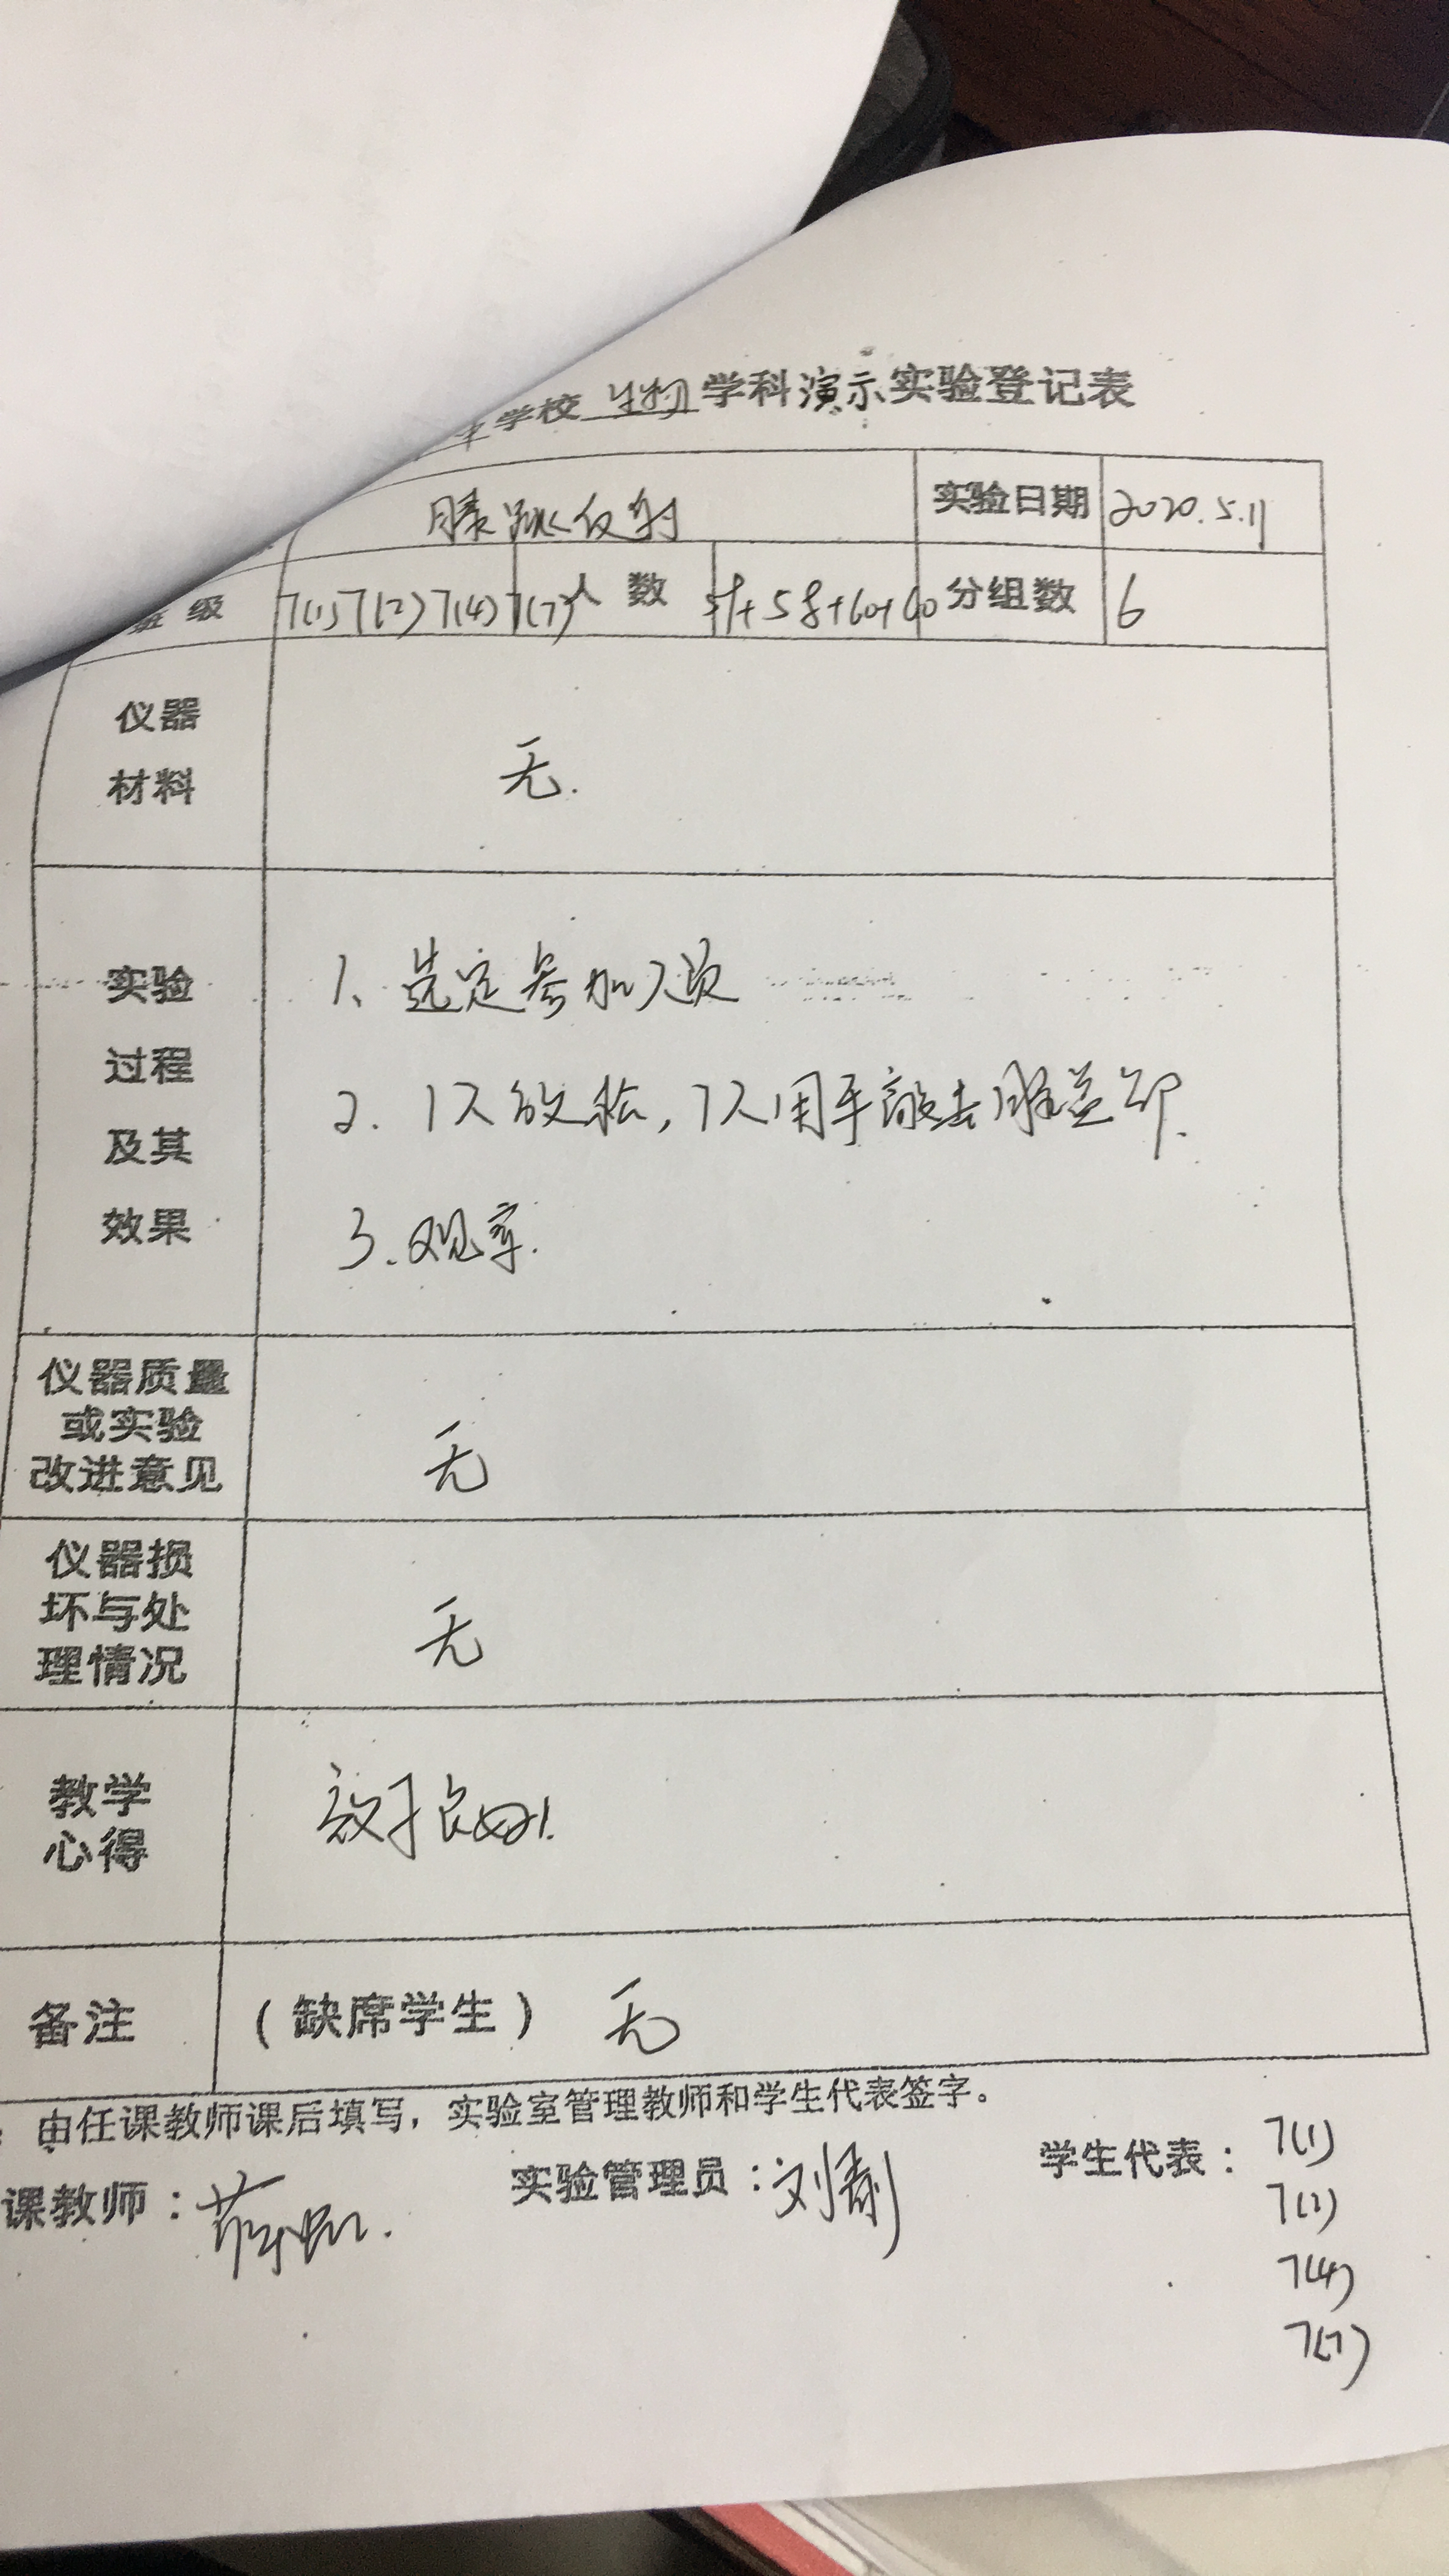 学校 生物 学科演示实验登记表
膝跳反射 实验日期 2020.5.11
班级 7(1) 7(2) 7(4) 7(7) 人数 +58+60+60 分组数 6
仪器
材料
无.
实验
过程
及其
效果
1、选定参加人员
2. 1人放松，1人用手敲击膝盖部.
3.观察.
仪器质量
或实验
改进意见
无
仪器损
坏与处
理情况
无
教学
心得
效果良好.
备注 （缺席学生） 无
：由任课教师课后填写，实验室管理教师和学生代表签字。
课教师： 实验管理员：刘 学生代表：7(1)
7(2)
7(4)
7(7)